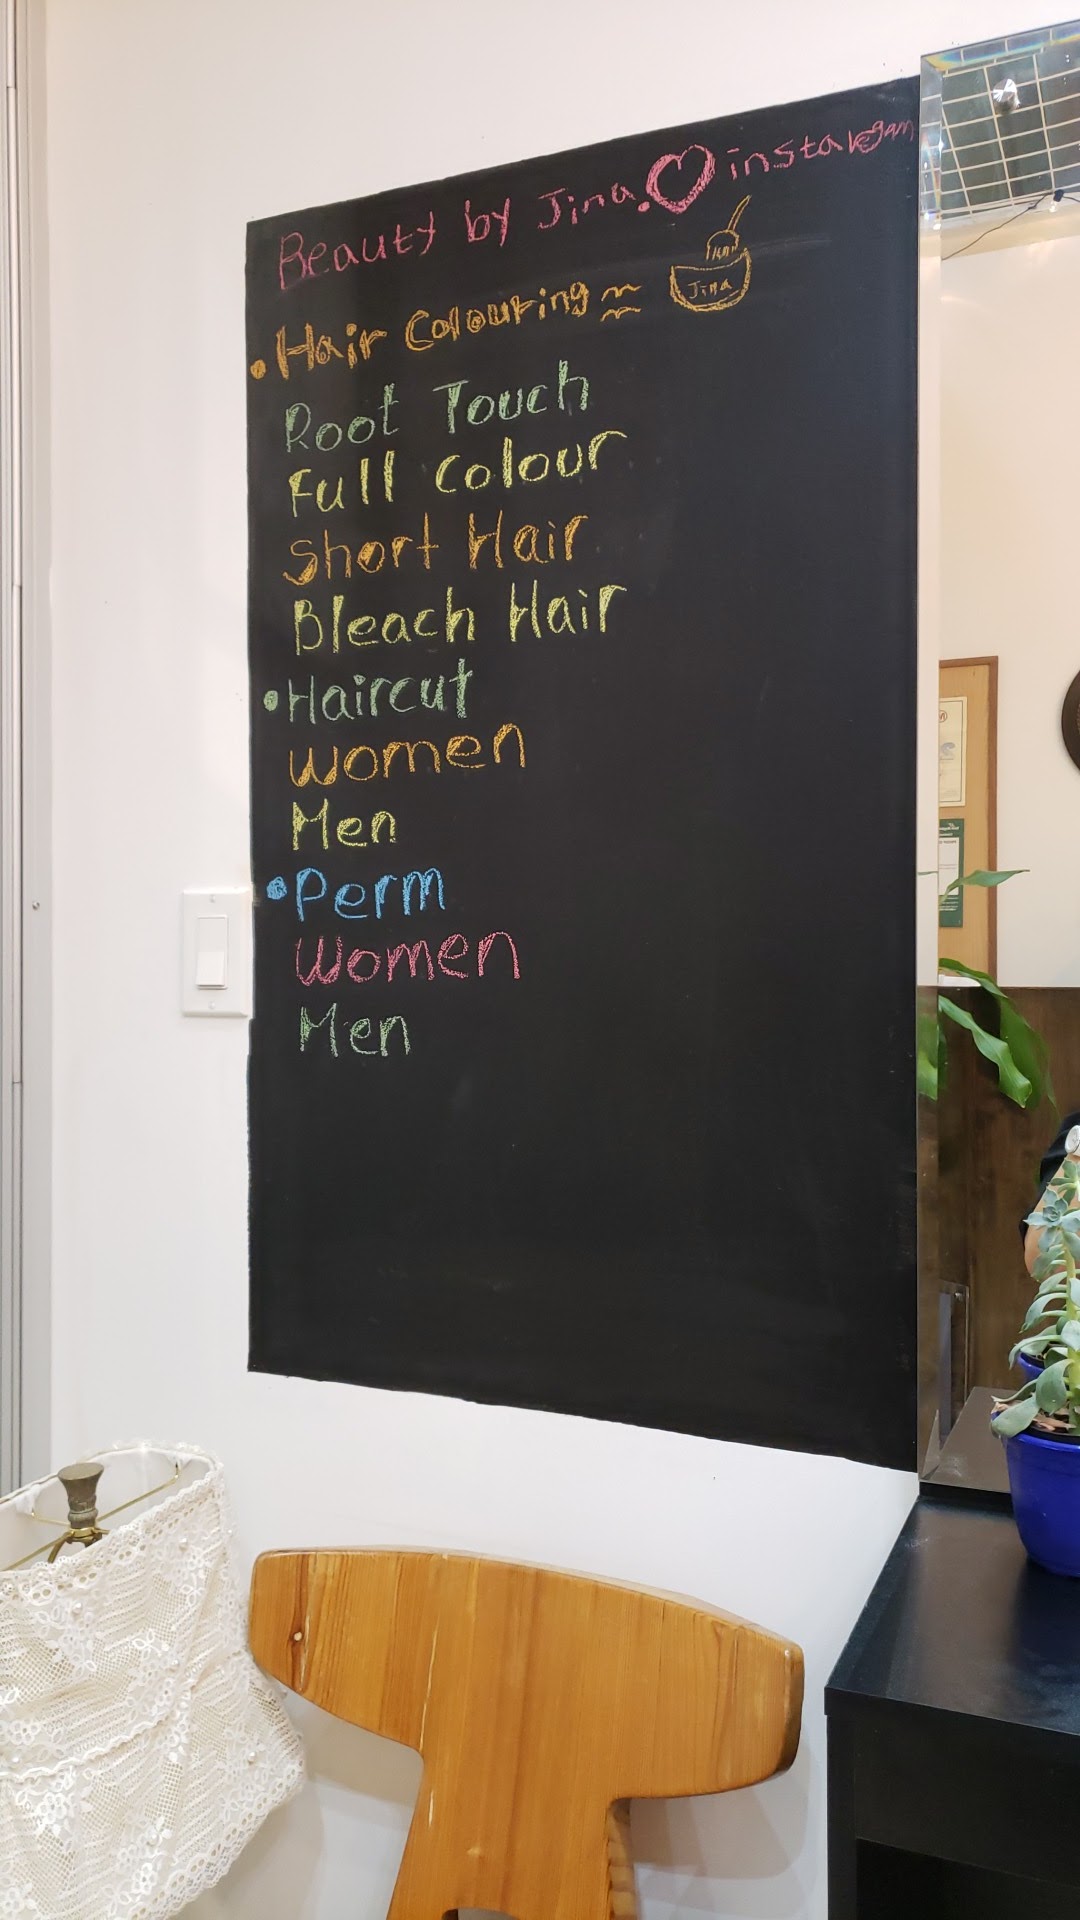 Beauty by Jina. instakgam
• Hair Colouring
Jina
Root Touch
Full Colour
Short Hair
Bleach Hair
• Haircut
Women
Men
• Perm
Women
Men